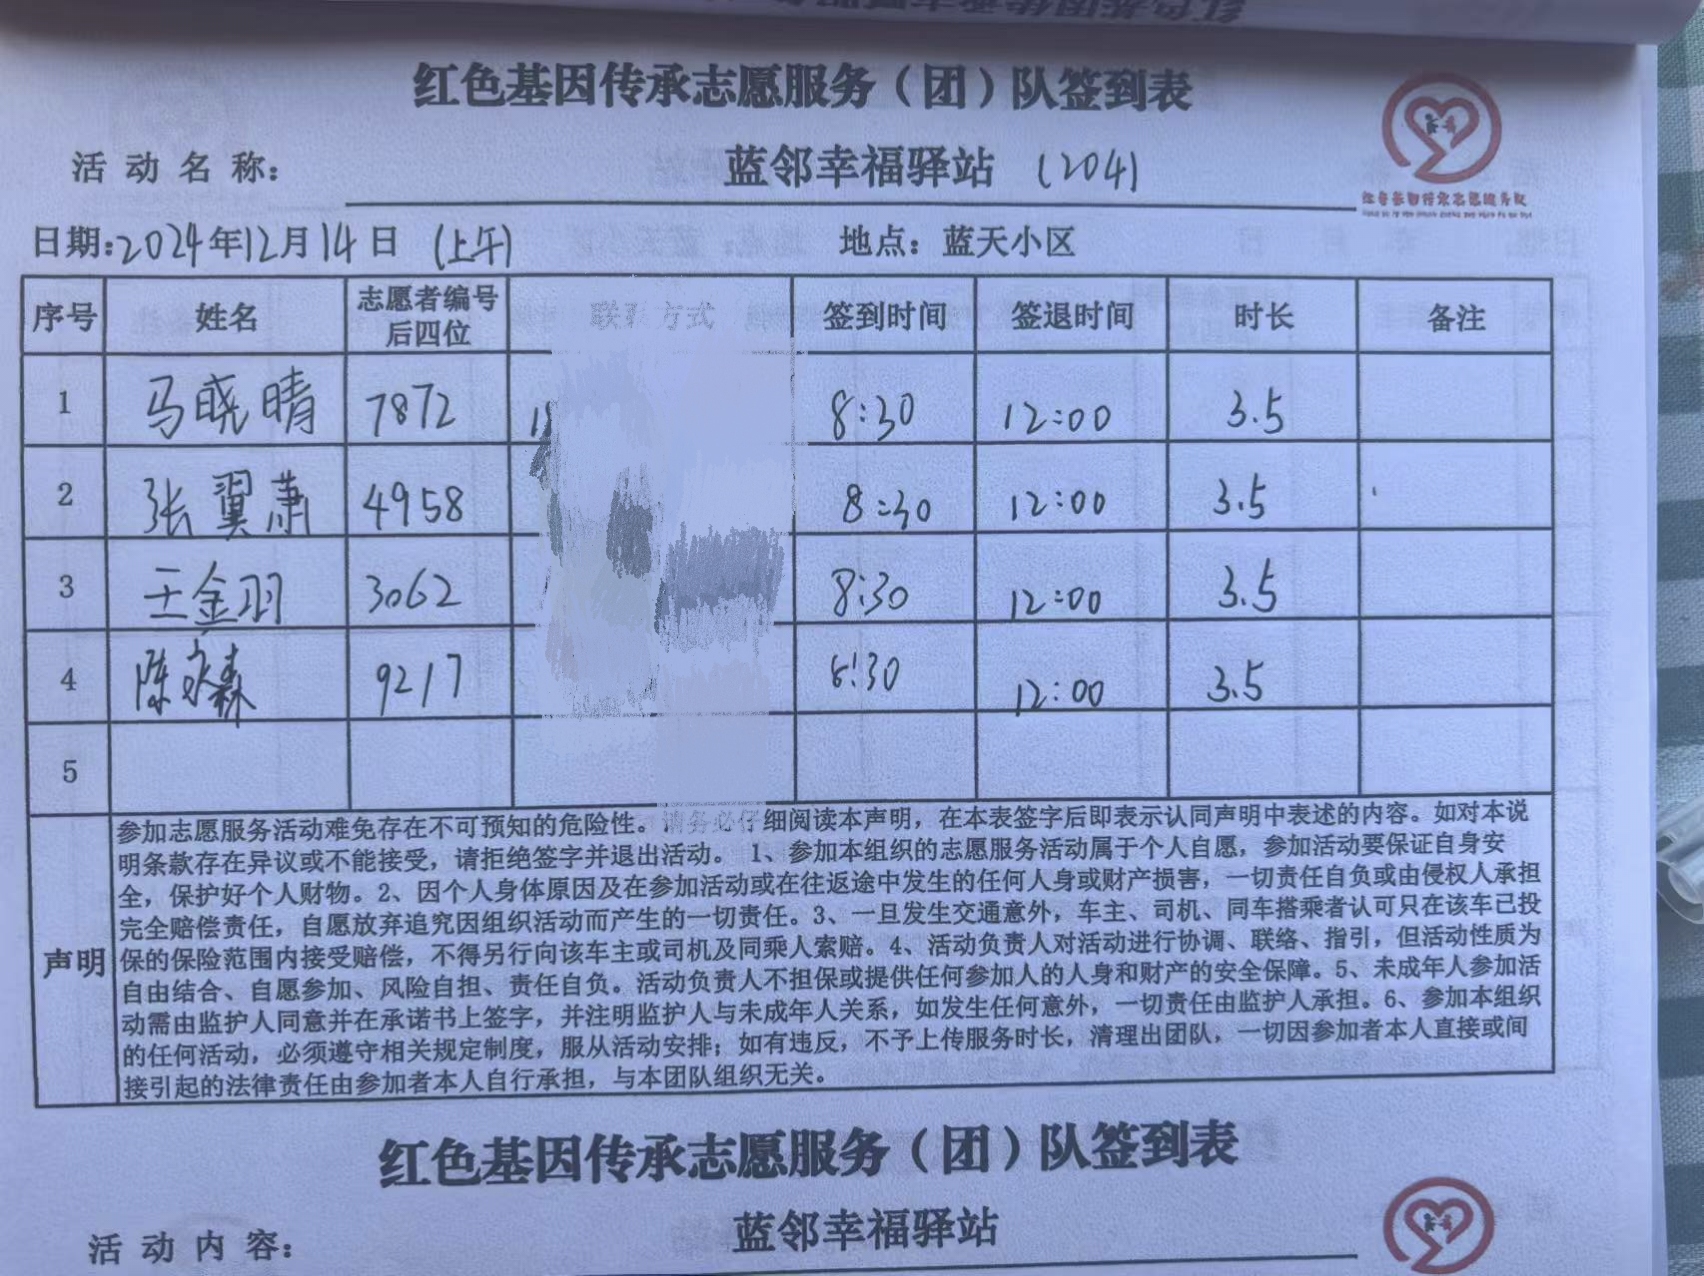 红色基因传承志愿服务（团）队签到表
活动名称： 蓝邻幸福驿站 (204)
日期:2024年12月14日 (上午) 地点：蓝天小区
序号 姓名 志愿者编号后四位 联系方式 签到时间 签退时间 时长 备注
1 马晓晴 7872 8:30 12:00 3.5
2 张翼萧 4958 8:30 12:00 3.5
3 王金羽 3062 8:30 12:00 3.5
4 陈永森 9217 8:30 12:00 3.5
5
声明
参加志愿服务活动难免存在不可预知的危险性。请务必仔细阅读本声明，在本表签字后即表示认同声明中表述的内容。如对本说
明条款存在异议或不能接受，请拒绝签字并退出活动。 1、参加本组织的志愿服务活动属于个人自愿，参加活动要保证自身安
全，保护好个人财物。2、因个人身体原因及在参加活动或在往返途中发生的任何人身或财产损害，一切责任自负或由侵权人承担
完全赔偿责任，自愿放弃追究因组织活动而产生的一切责任。3、一旦发生交通意外，车主、司机、同车搭乘者认可只在该车已投
保的保险范围内接受赔偿，不得另行向该车主或司机及同乘人索赔。4、活动负责人对活动进行协调、联络、指引，但活动性质为
自由结合、自愿参加、风险自担、责任自负。活动负责人不担保或提供任何参加人的人身和财产的安全保障。5、未成年人参加活
动需由监护人同意并在承诺书上签字，并注明监护人与未成年人关系，如发生任何意外，一切责任由监护人承担。6、参加本组织
的任何活动，必须遵守相关规定制度，服从活动安排；如有违反，不予上传服务时长，清理出团队，一切因参加者本人直接或间
接引起的法律责任由参加者本人自行承担，与本团队组织无关。
红色基因传承志愿服务（团）队签到表
活动内容： 蓝邻幸福驿站